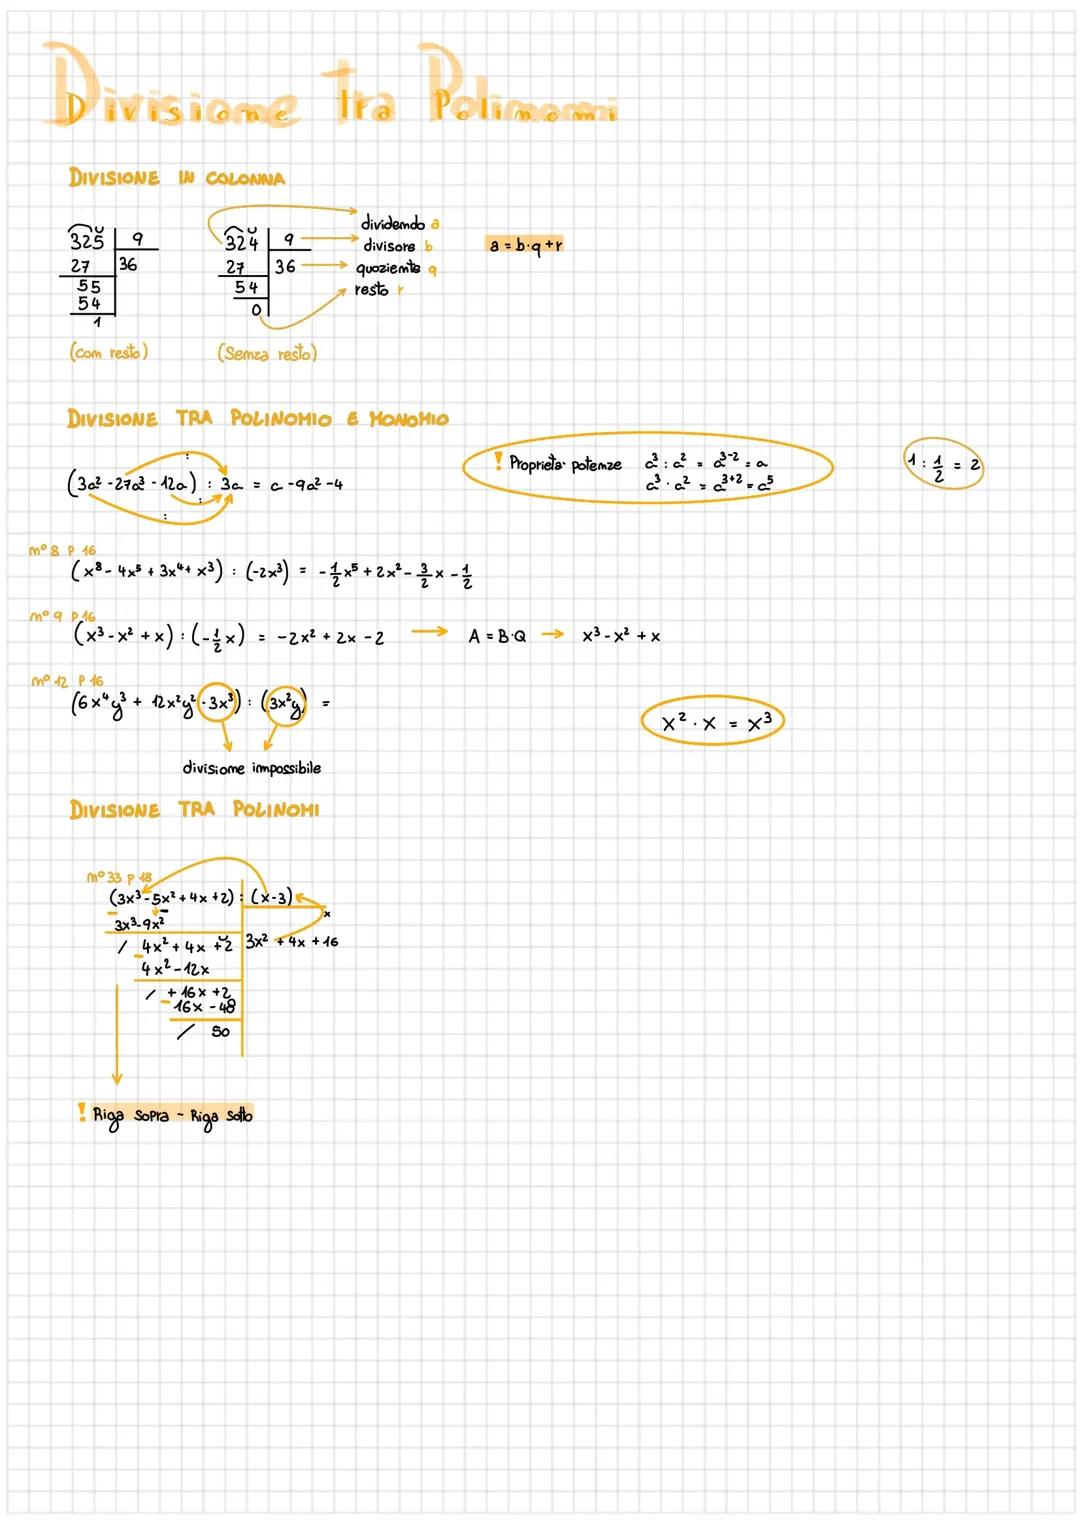 Divisione Tra Polinomi
DIVISIONE IN COLONNA
325 | 9
27 | 36
55
54
1
(con resto)
324 | 9
27 | 36
54
0
(Senza resto)
dividendo a
divisore b
quoziente q
resto r
a = b·q+r
DIVISIONE TRA POLINOMIO E MONOMIO
: : :
(3a² -27a³ -12a) : 3a = a -9a² -4
! Proprietà potenze a³ : a² = a³⁻² = a
a³ · a² = a³⁺² = a⁵
1 : 1/2 = 2
n° 8 P 16
(x⁸ - 4x⁵ + 3x⁴ + x³) : (-2x³) = -1/2 x⁵ + 2x² - 3/2 x - 1/2
n° 9 P.16
(x³ - x² + x) : (-1/2 x) = -2x² + 2x -2 → A = B·Q → x³ - x² + x
n° 12 P 16
(6x⁴y³ + 12x²y² - 3x³) : (3x²y) =
divisione impossibile
x² · x = x³
DIVISIONE TRA POLINOMI
n° 33 P 18
(3x³ - 5x² + 4x + 2) : (x - 3)
- 3x³ - 9x² x
/ 4x² + 4x + 2 | 3x² + 4x + 16
- 4x² - 12x
/ + 16x + 2
- 16x - 48
/ 50
! Riga sopra - Riga sotto